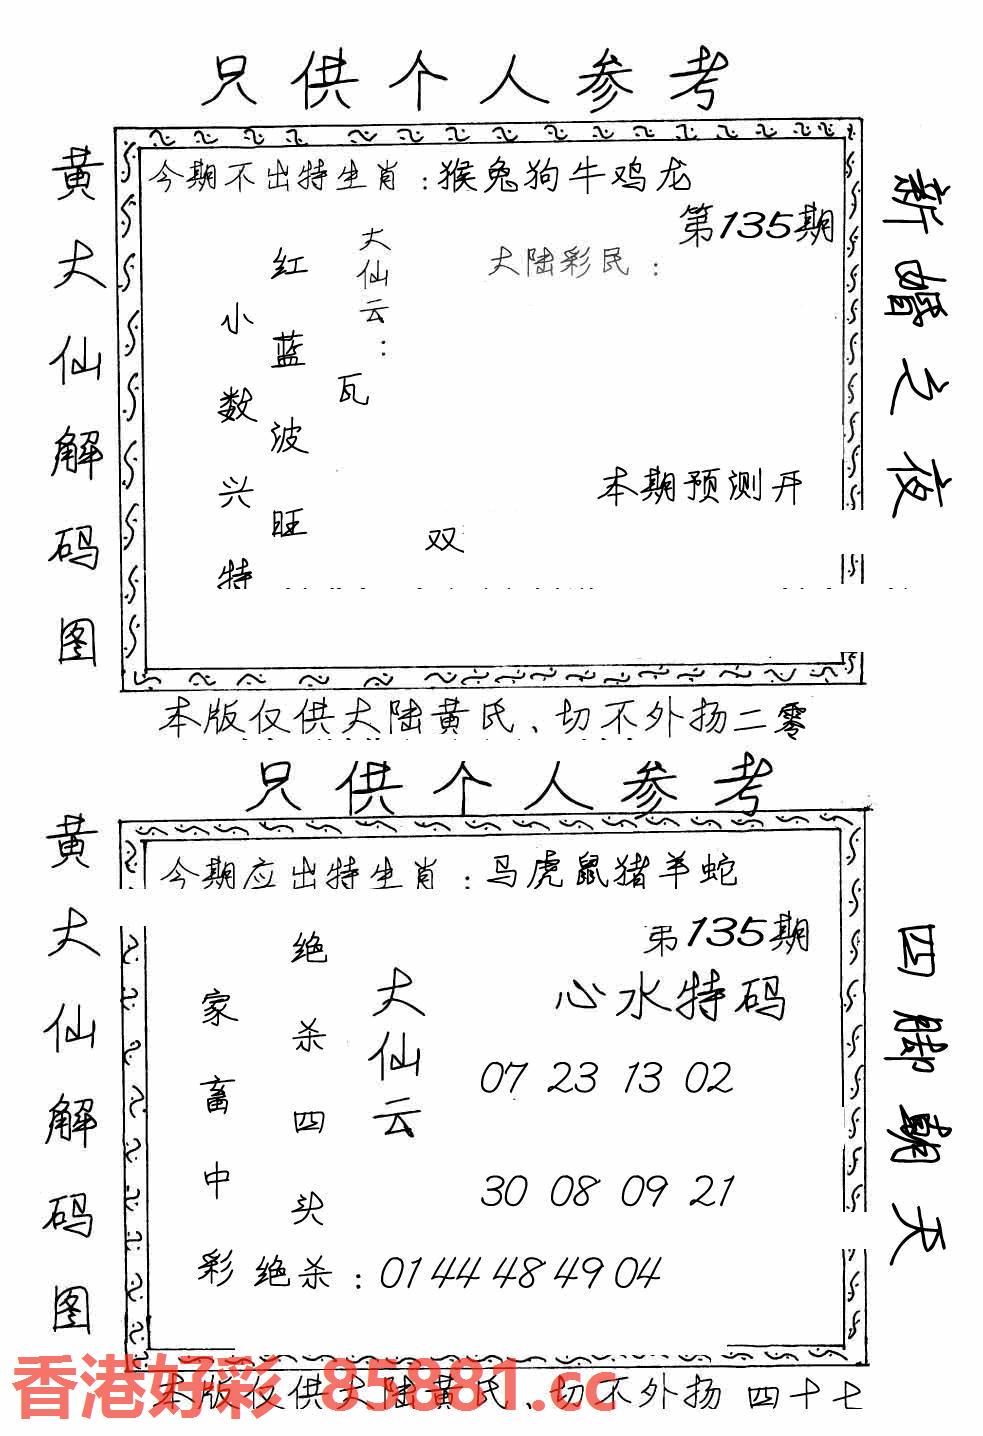 只供个人参考
黄大仙解码图
今期不出特生肖：猴兔狗牛鸡龙
第135期
大陆彩民：
大仙云：
瓦
红蓝波旺
小数兴特
双
本期预测开
新婚之夜
本版仅供大陆黄氏、切不外扬二零
只供个人参考
黄大仙解码图
今期应出特生肖：马虎鼠猪羊蛇
弟135期
心水特码
大仙云
绝杀四头
家畜中彩
07 23 13 02
30 08 09 21
绝杀：01 44 48 49 04
四脚朝天
本版仅供大陆黄氏、切不外扬 四十七
香港好彩 85881.cc